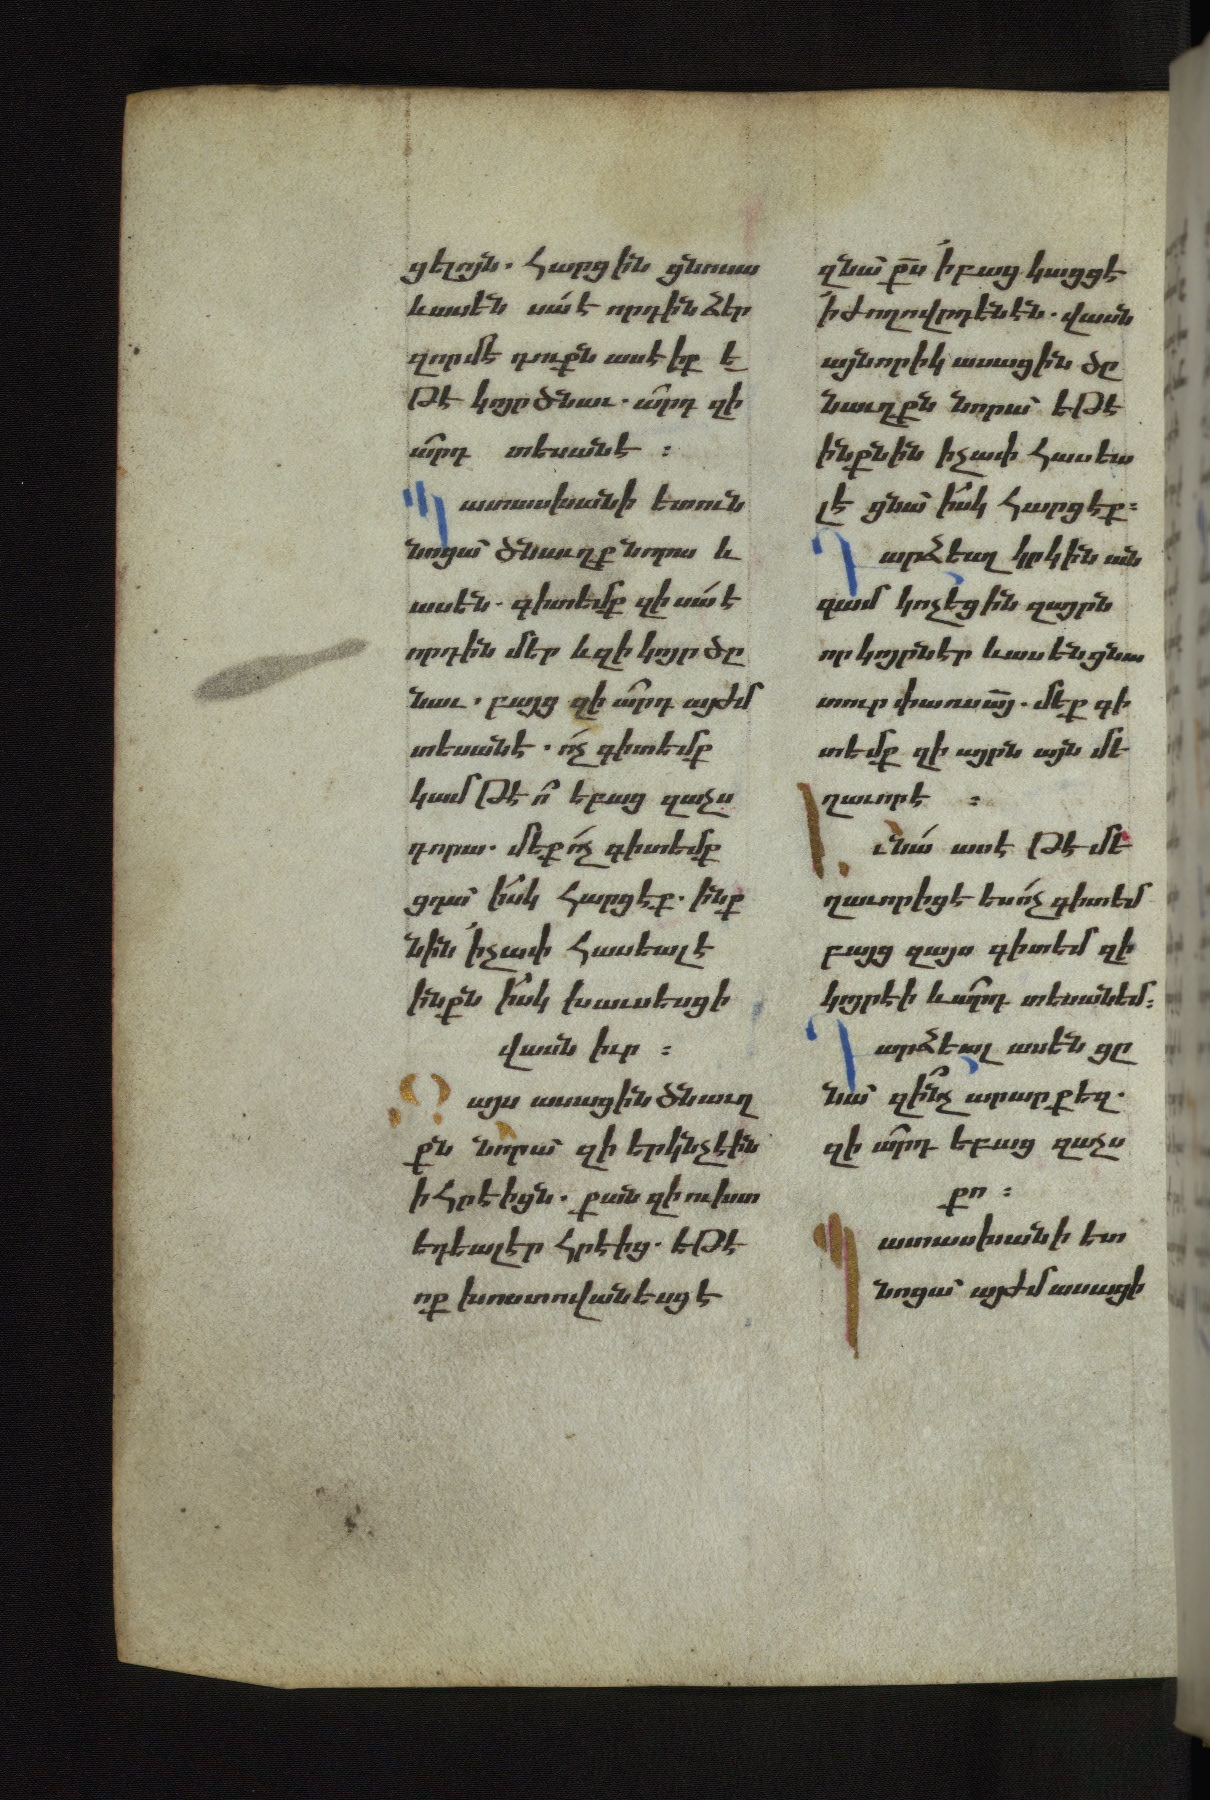 ցելոյն. հարցին ցնոսա
և ասեն սա՛ է որդին ձեր
զորմէ դուքն ասէիք ե
թէ կոյր ծնաւ. ա՞րդ զի
ա՞րդ տեսանէ :
Պատասխանի ետուն
նոցա՝ ծնաւղք նորա և
ասեն. գիտեմք զի սա՛ է
որդին մեր և զի կոյր ծը
նաւ. բայց զի ա՞րդ այժմ
տեսանէ. ո՛չ գիտեմք
կամ թէ ո՞ եբաց զաչս
դորա. մեք ո՛չ գիտեմք
ցդա՝ ի՛սկ հարցէք. ինք
նին ՛ի չափ հասեալ է
ինքն ի՛սկ խաւսեսցի
վասն իւր :
Զայս ասացին ծնաւղ
քն նորա՝ զի երկնչէին
ի հրէիցն. քան զի ուխտ
եդեալ էր հրէից. եթէ
ոք խոստովանեսցէ
զնա՝ ք̅ս ՛ի բաց կացցէ
՛ի ժողովրդենէն. վասն
այնորիկ ասացին ծը
նաւղքն նորա՝ եթէ
ինքնին ի չափ հասեա
լ է ցնա՝ ի՛սկ հարցէք :
Դարձեալ կրկին ան
գամ կոչեցին զայրն
որ կոյրն էր և ասեն ցնա
տուր փառս ա̅յ. մեք գի
տեմք զի այրն այն մե
ղաւոր է :
Եւ նա՛ ասէ թէ մե
ղաւոր իցէ ես ո՛չ գիտեմ
բայց զայս գիտեմ զի
կոյր էի և ա՞րդ տեսանեմ :
Դարձեալ ասեն ցը
նա՝ զի՞նչ արար քեզ.
զի ա՞րդ եբաց զաչս
քո :
Պատասխանի ետ
նոցա՝ այժմ ասացի